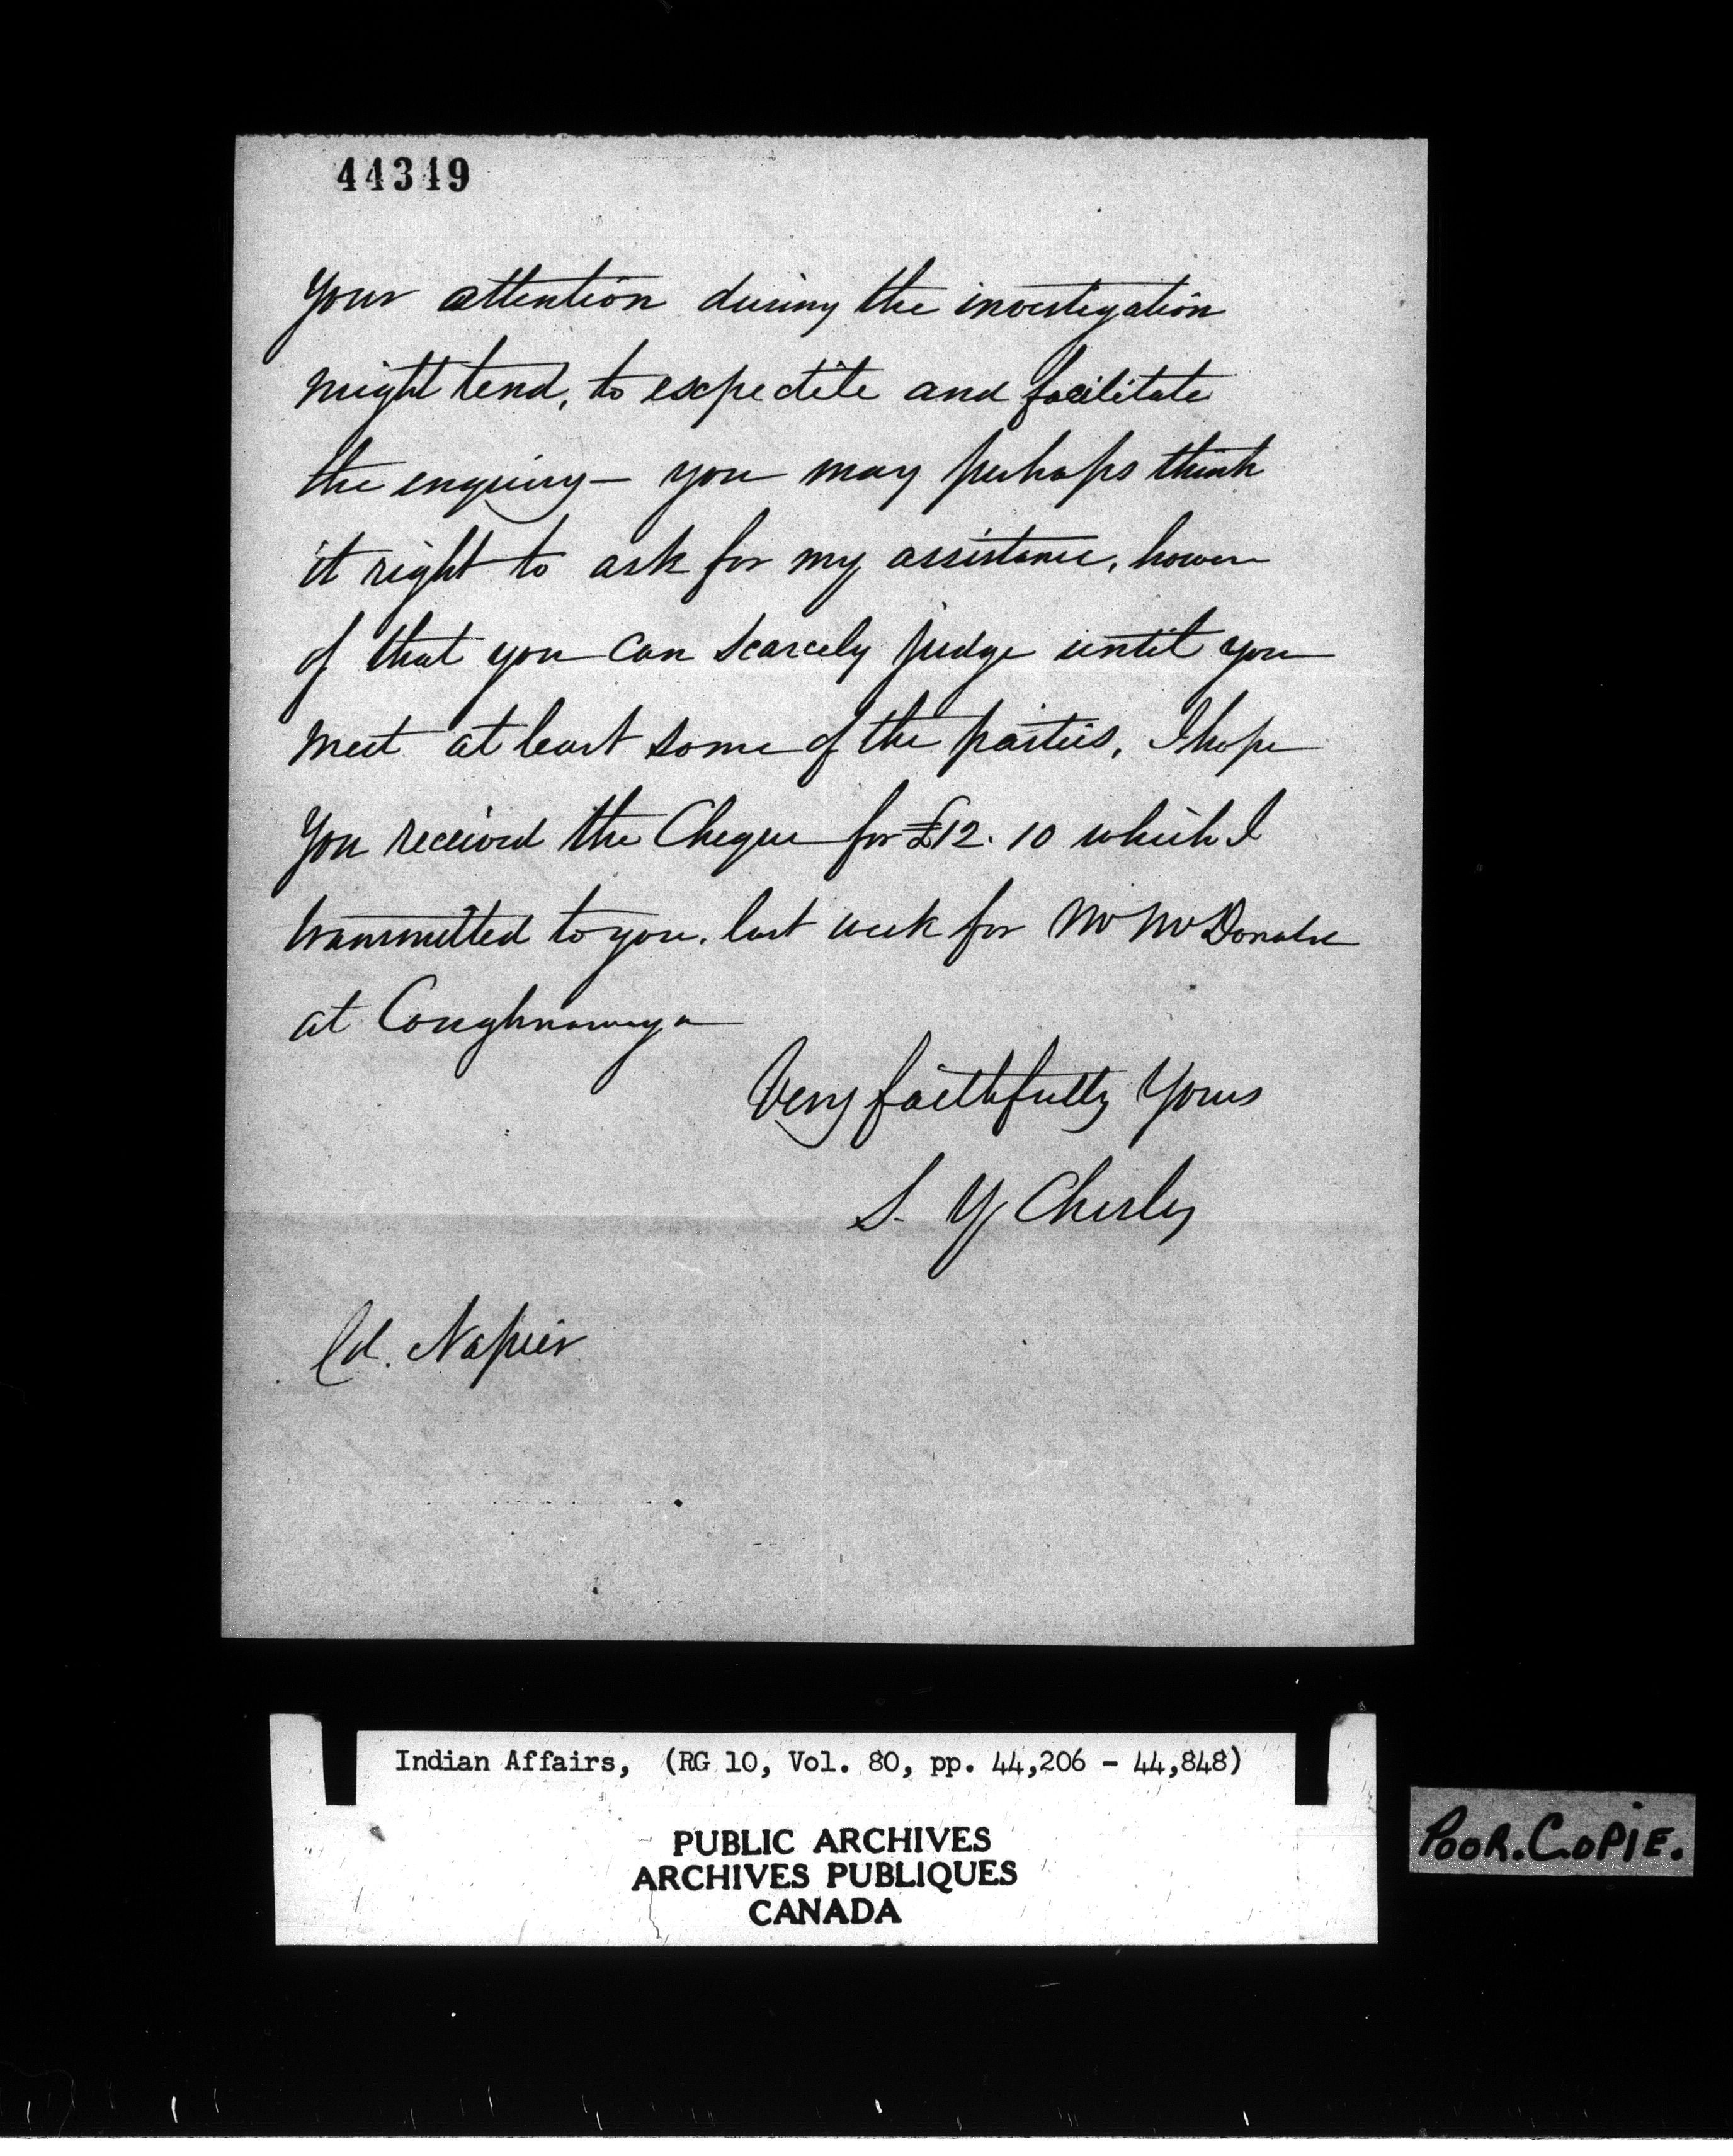 44319
Your attention during the investigation
might tend, to expedite and facilitate
the enquiry — you may perhaps think
it right to ask for my assistance, however
of that you can scarcely judge until you
meet at least some of the parties, I hope
You received the Cheque for £12. 10 which I
transmitted to you. last week for Mr McDonald
at Coughnawaga
Very faithfully Yours
S. Y Chesley
Col. Napier
Indian Affairs, (RG 10, Vol. 80, pp. 44,206 - 44,848)
PUBLIC ARCHIVES
ARCHIVES PUBLIQUES
CANADA
POOR.COPIE.